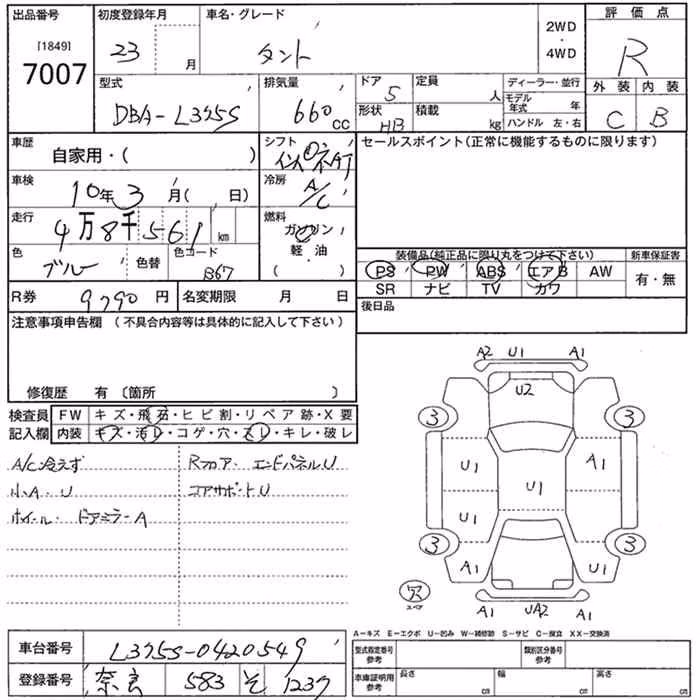 出品番号
[1849]
7007
初度登録年月
23 月
車名・グレード
タント
2WD
・
4WD
評価点
R
型式
DBA-L375S
排気量
660cc
ドア 5
形状 HB
定員 人
積載 kg
ディーラー・並行
モデル年式 年
ハンドル 左・右
外装
C
内装
B
車歴
自家用・( )
車検
10年3月( 日)
走行
4万8千561km
色
ブルー
色替
色コード
B67
シフト
インパネAT
冷房
A/C
燃料
ガソリン
軽・油
( )
セールスポイント(正常に機能するものに限ります)
装備品(純正品に限り丸をつけて下さい)
PS PW ABS エアB AW
SR ナビ TV カワ
新車保証書
有・無
R券 9790円
名変期限 月 日
後日品
注意事項申告欄(不具合内容等は具体的に記入して下さい)
修復歴 有〔箇所 〕
検査員記入欄
FW キズ・飛石・ヒビ割・リペア跡・X要
内装 キズ・汚レ・コゲ・穴・スレ・キレ・破レ
A/C冷えず
小A・U
ホイール・ドアミラーA
Rフロア・エンドパネルU
コアサポートU
A2 U1 A1
U2
3 3
U1 A1
U1
U1
3 3
A1 U1
穴
スペア
A1 UA2 A1
A-キズ E-エクボ U-凹み W-補修跡 S-サビ C-腐食 XX-交換済
車台番号 L375S-0420549
登録番号 奈良 583 そ 1237
型式指定番号
参考
類別区分番号
参考
車庫証明用
参考
長さ cm
幅 cm
高さ cm